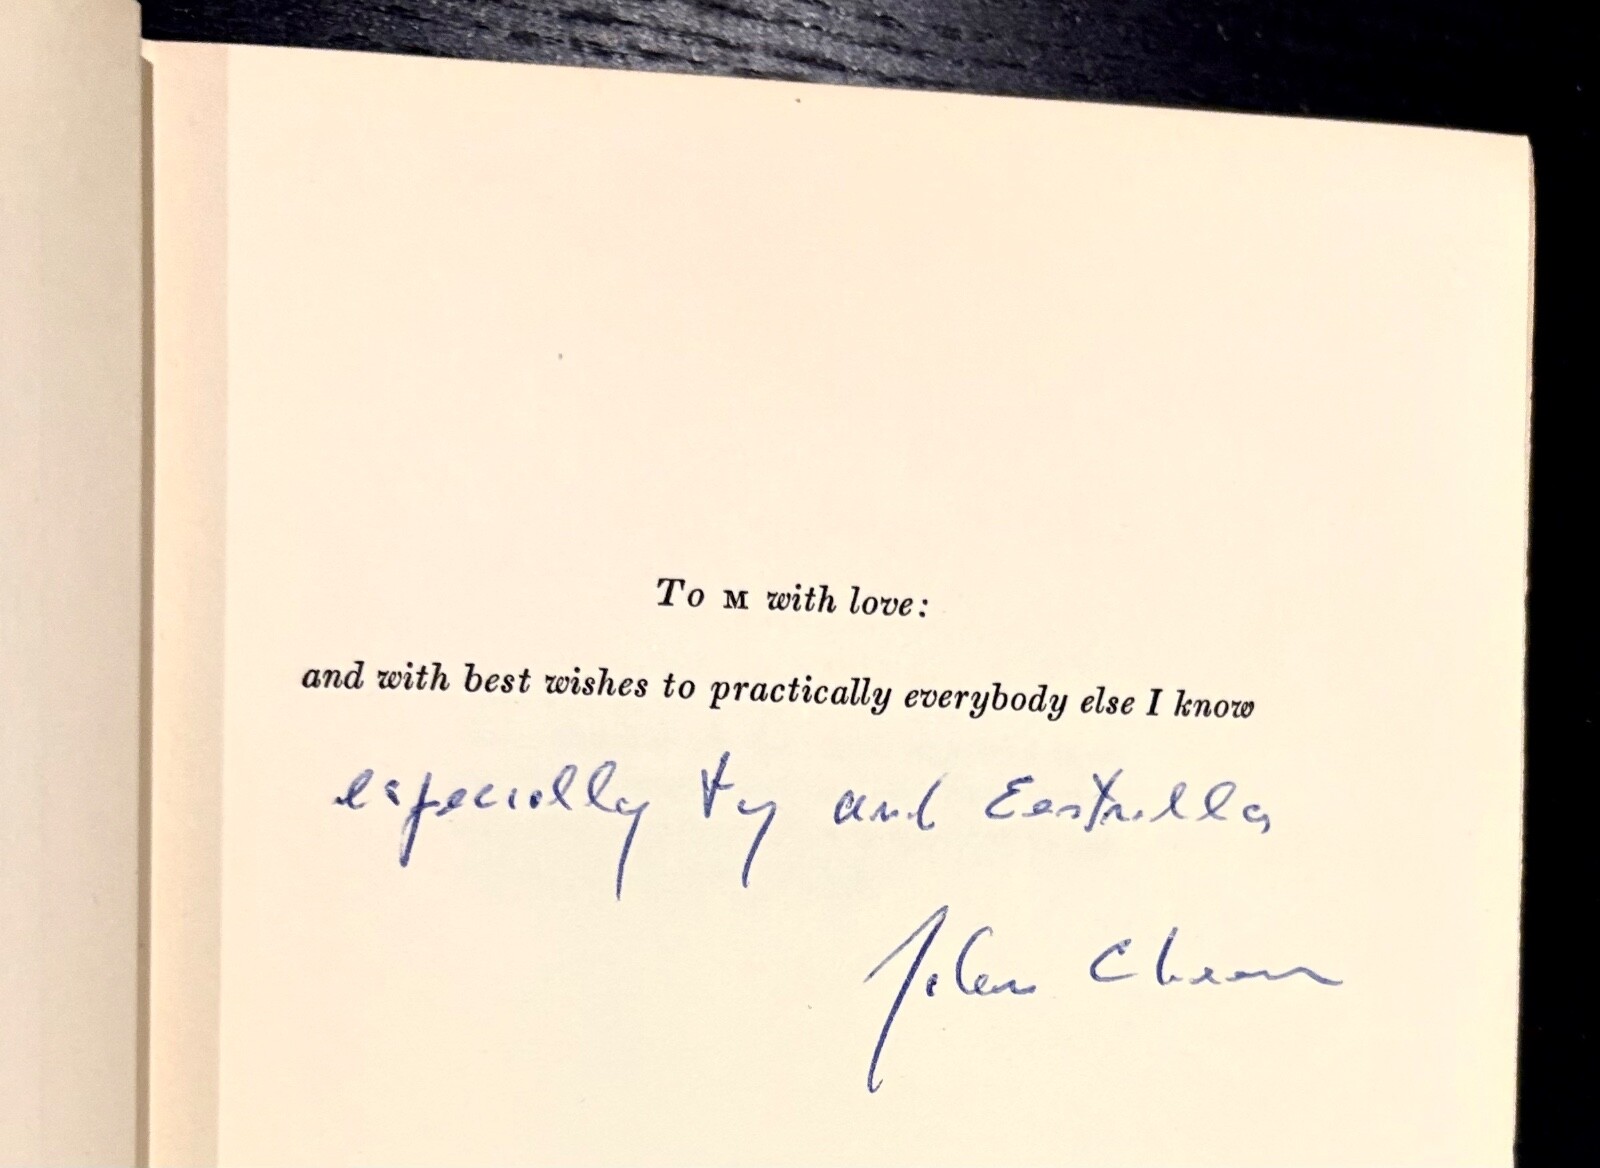 To M with love:
and with best wishes to practically everybody else I know
especially Ty and Estrella
John Cheever